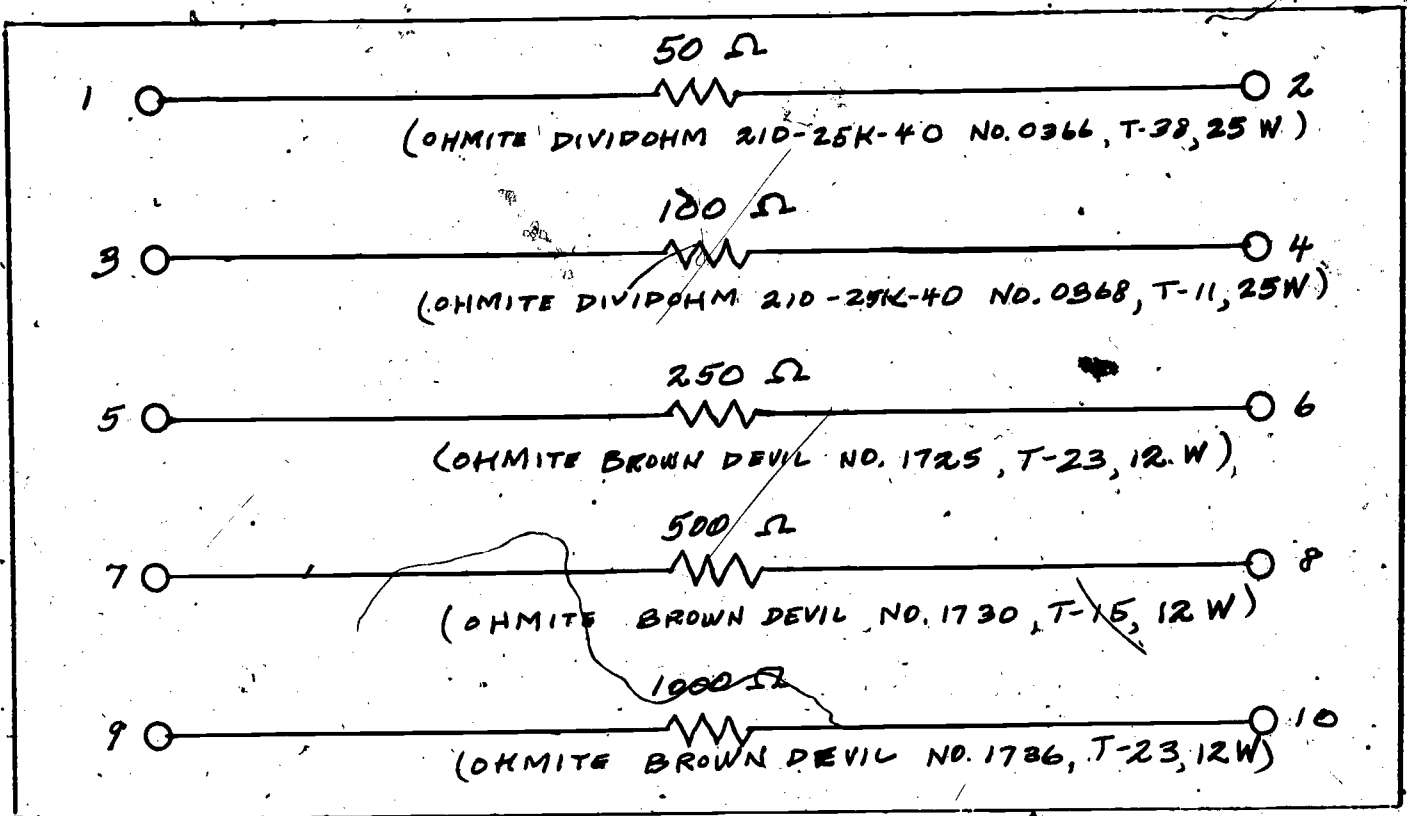 50 Ω
1 2
(OHMITE DIVIDOHM 210-25K-40 NO. 0366, T-38, 25 W)
100 Ω
3 4
(OHMITE DIVIDOHM 210-25K-40 NO. 0368, T-11, 25W)
250 Ω
5 6
(OHMITE BROWN DEVIL NO. 1725, T-23, 12 W)
500 Ω
7 8
(OHMITE BROWN DEVIL NO. 1730, T-15, 12 W)
1000 Ω
9 10
(OHMITE BROWN DEVIL NO. 1736, T-23, 12W)